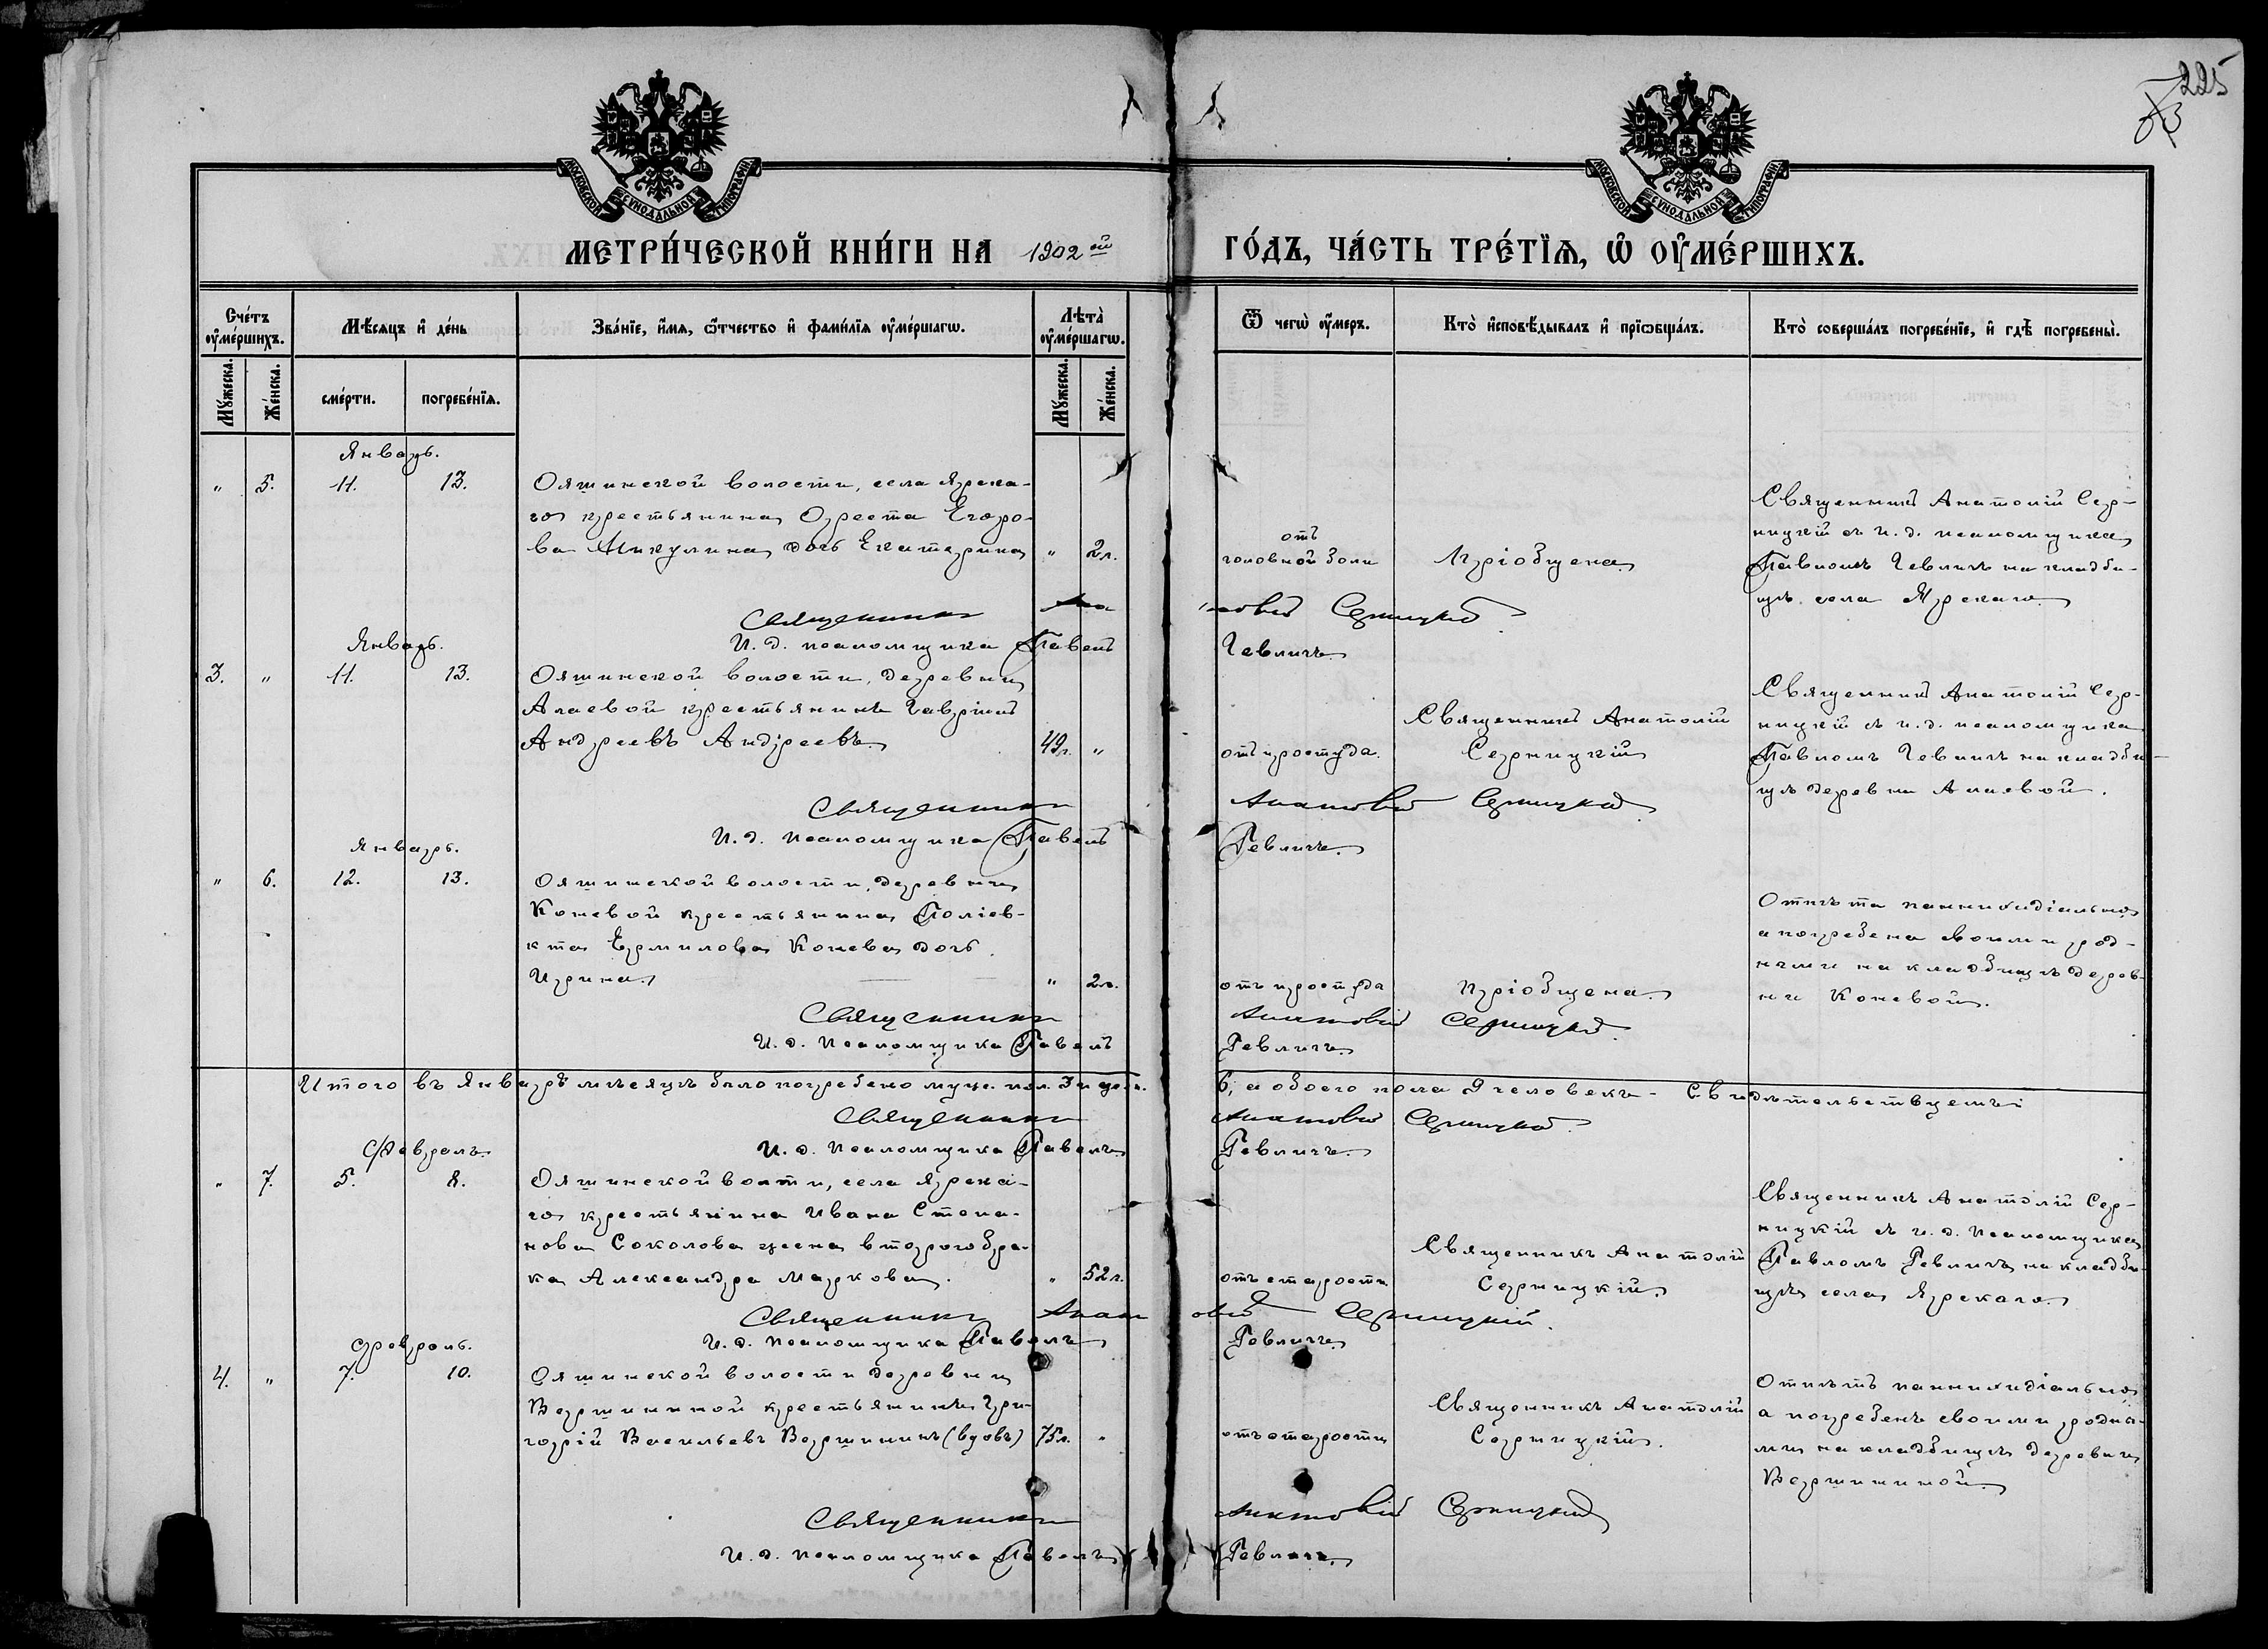 225
МОСКОВСКОЙ СѴНОДАЛЬНОЙ ТИПОГРАФІИ
МОСКОВСКОЙ СѴНОДАЛЬНОЙ ТИПОГРАФІИ
МЕТРИ́ЧЕСКОЙ КНИ́ГИ НА 1902 ой ГО́ДЪ, ЧА́СТЬ ТРЕ́ТЇѦ, Ѡ҆ ОУ҆МЕ́РШИХЪ.
Сче́тъ оу҆ме́ршихъ.
Мѣ́сѧцъ и҆ де́нь
Зва́нїе, и҆́мѧ, ѻ҆́тчество и҆ фами́лїѧ оу҆ме́ршагѡ.
Лѣта̀ оу҆ме́ршагѡ.
Ѿ чегѡ̀ оу҆́меръ.
Кто̀ и҆сповѣ́дывалъ и҆ прїѡбща́лъ.
Кто̀ соверша́лъ погребе́нїе, и҆ гдѣ̀ погребены̀.
Мꙋ́жеска. Же́нска. сме́рти. погребе́нїѧ. Мꙋ́жеска. Же́нска.
Январь.
" 5. 11. 13.
Ояшинской волости, села Ярска-
го крестьянина Ореста Егоро-
ва Никулина дочь Екатерина " 2 л.
отъ
головной боли
Пріобщена
Священникъ Анатолій Сер-
ницкій съ и. д. псаломщика
Павломъ Гевличъ на кладби-
щѣ села Ярскаго.
Священникъ Анатолій Серницкій.
И. д. псаломщика Павелъ Гевличъ.
Январь.
3. " 11. 13.
Ояшинской волости, деревни
Алаевой крестьянинъ Гавріилъ
Андреевъ Андреевъ. 49 л. "
отъ простуда.
Священникъ Анатолій
Серницкій
Священникъ Анатолій Сер-
ницкій съ и. д. псаломщика
Павломъ Гевличъ на кладби-
щѣ деревни Алаевой.
Священникъ Анатолій Серницкій.
И. д. псаломщика Павелъ Гевличъ.
Январь.
" 6. 12. 13.
Ояшинской волости, деревни
Коневой крестьянина Поліев-
кта Ермилова Конева дочь
Ирина. " 2 л.
отъ простуда
Пріобщена.
Отпѣта паннихидіально
а погребена своими род-
ными на кладбищѣ дерев-
ни Коневой.
Священникъ Анатолій Серницкій.
И. д. Псаломщика Павелъ Гевличъ.
Итого въ Январѣ мѣсяцѣ было погребено муж. пол. 3 и жен. 6, а обоего пола 9 человекъ - Свидѣтельствуемъ:
Священникъ Анатолій Серницкій.
И. д. Псаломщика Павелъ Гевличъ.
Февраль.
" 7. 5. 8.
Ояшинской вол-ти, села Ярска-
го крестьянина Ивана Степа-
нова Соколова жена второго бра-
ка Александра Маркова. " 52 л.
отъ старости
Священникъ Анатолій
Серницкій.
Священникъ Анатолій Сер-
ницкій съ и. д. Псаломщика
Павломъ Гевличъ на кладби-
щѣ села Ярскаго.
Священникъ Анатолій Серницкій.
И. д. Псаломщика Павелъ Гевличъ.
Февраль.
4. " 7. 10.
Ояшинской волости деревни
Вершининой крестьянинъ Гри-
горій Васильевъ Вершининъ (вдовъ) 75 л. "
отъ старости
Священникъ Анатолій
Серницкій.
Отпѣтъ паннихидіально
а погребенъ своими родны-
ми на кладбищѣ деревни
Вершининой.
Священникъ Анатолій Серницкій
И. д. Псаломщика Павелъ Гевличъ.